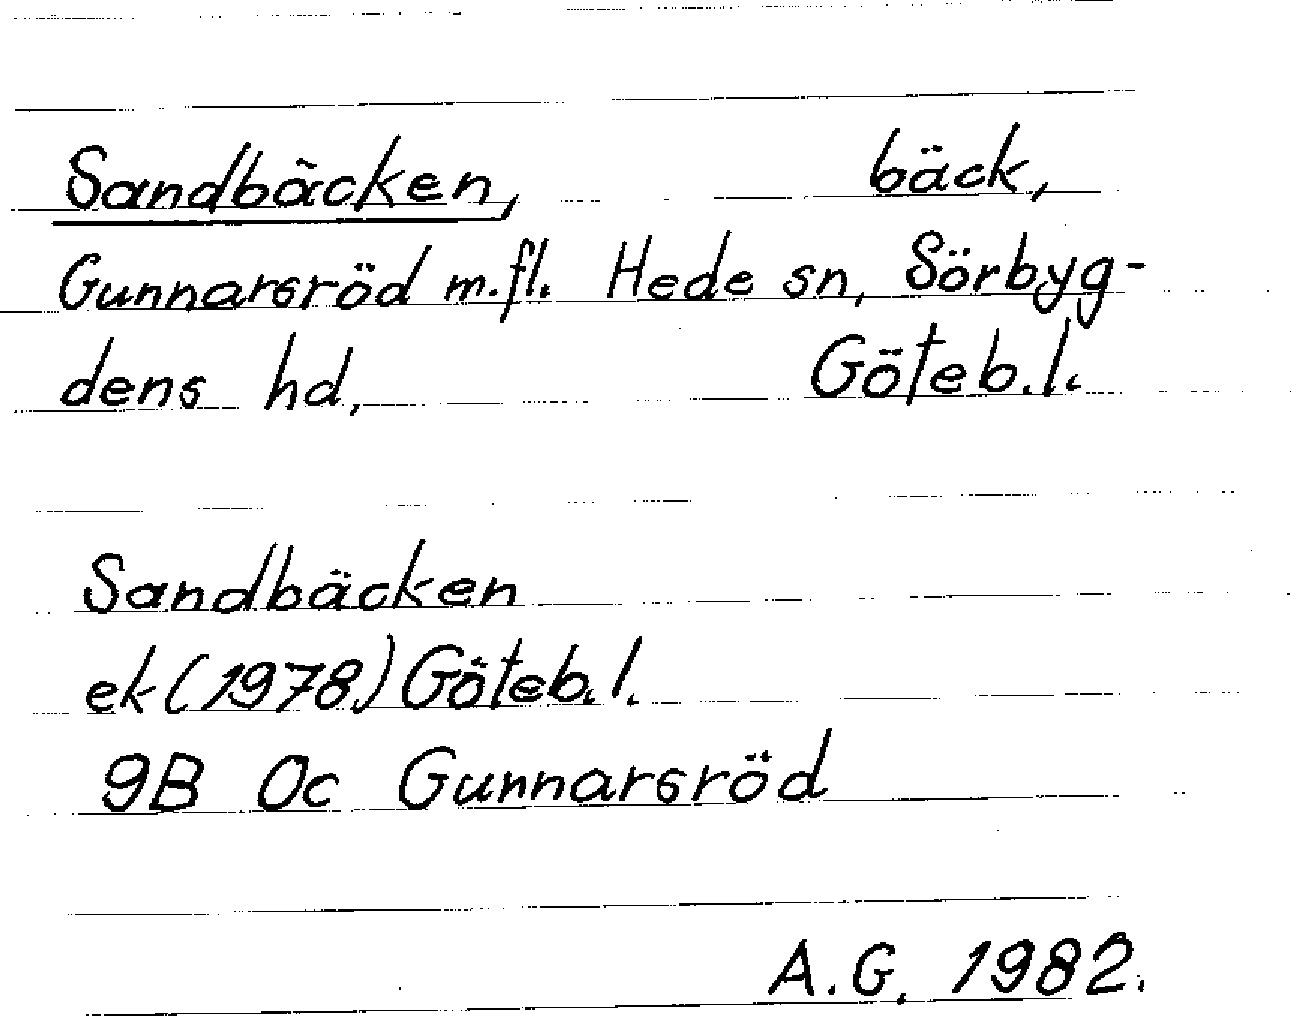 Sandbäcken, bäck,
Gunnarsröd m.fl. Hede sn, Sörbyg-
dens hd, Göteb.l.
Sandbäcken
ek (1978) Göteb.l.
9B Oc Gunnarsröd
A.G. 1982.